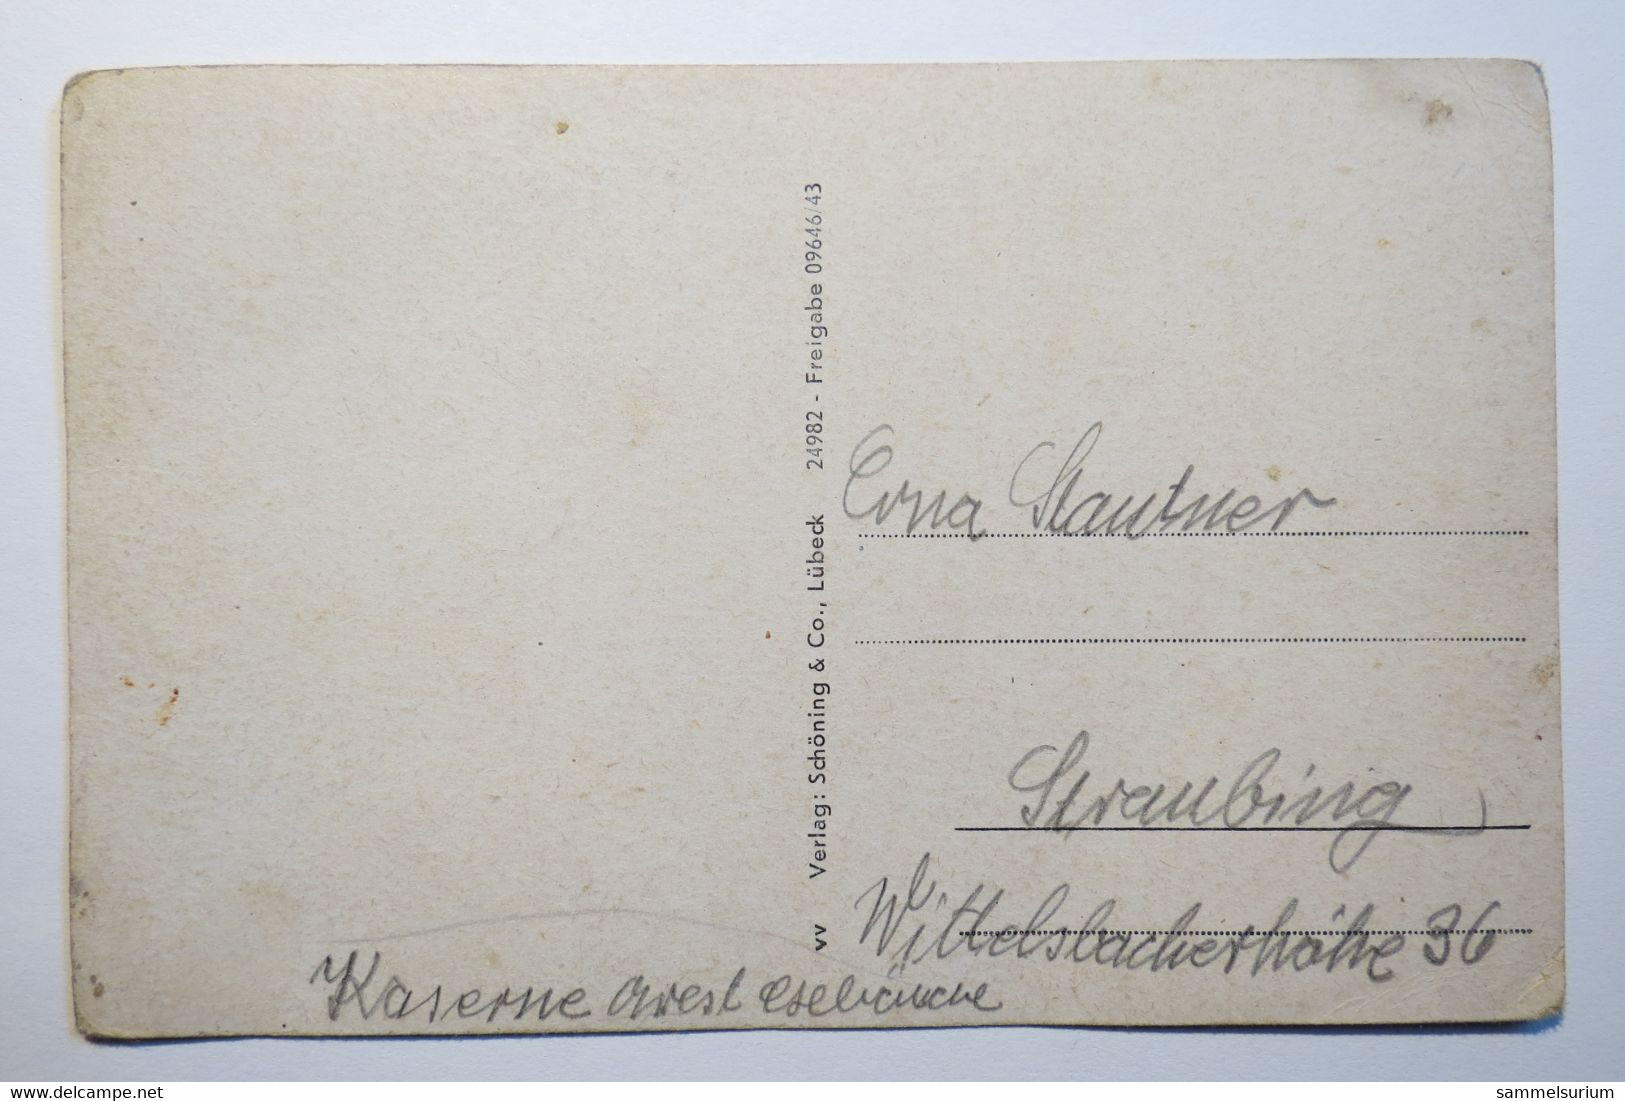 vv Verlag: Schöning & Co., Lübeck 24982 - Freigabe 09646/43
Erna Stautner
Straubing
Wittelsbacherhöhe 36
Kaserne Arest Gebäude
delcampe.net
sammelsurium